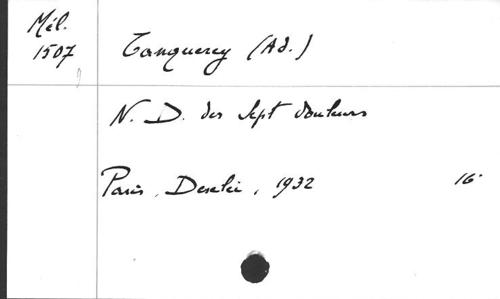 Mél.
1507
Tanquerey (Ad.)
N. D. des Sept douleurs
Paris, Desclée, 1932 16°